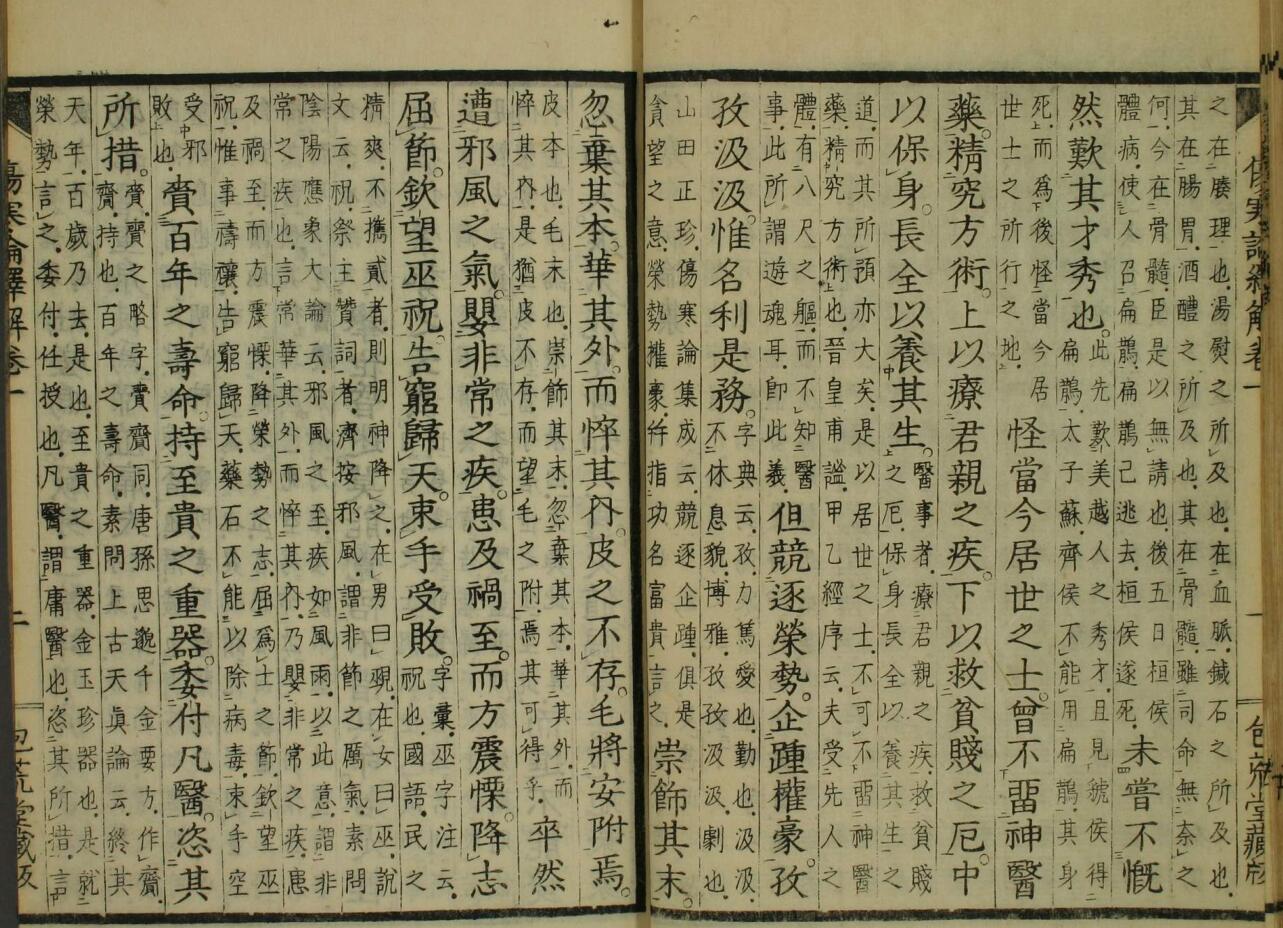 之在腠理也湯熨之所及也在血脈鍼石之所及也
其在腸胃酒醴之所及也其在骨髓雖司命無奈之
何今在骨髓臣是以無請也後五日桓侯
體病使人召扁鵲扁鵲已逃去桓侯遂死未嘗不慨
然歎其才秀也此先歎美越人之秀才且見虢侯得
扁鵲太子蘇齊侯不能用扁鵲其身
死而爲後怪當今居
世士之所行之地怪當今居世之士曾不畱神醫
藥精究方術上以療君親之疾下以救貧賤之厄中
以保身長全以養其生醫事者療君親之疾救貧賤
之厄保身長全以養其生之
道而其所預亦大矣是以居世之士不可不畱神醫
藥精究方術也晉皇甫謐甲乙經序云夫受先人之
體有八尺之軀而不知醫
事此所謂遊魂耳卽此義但競逐榮勢企踵權豪孜
孜汲汲惟名利是務字典云孜力篤愛也勤也汲汲
不休息貌博雅孜孜汲汲劇也
山田正珍傷寒論集成云競逐企踵俱是
貪望之意榮勢權豪幷指功名富貴言之崇飾其末
忽棄其本華其外而悴其內皮之不存毛將安附焉
皮本也毛末也崇飾其末忽棄其本華其外而
悴其內是猶皮不存而望毛之附焉其可得乎卒然
遭邪風之氣嬰非常之疾患及禍至而方震慄降志
屈節欽望巫祝告窮歸天束手受敗字彙巫字注云
祝也國語民之
精爽不攜貳者則明神降之在男曰覡在女曰巫說
文云祝祭主贊詞者濟按邪風謂非節之厲氣素問
陰陽應象大論云邪風之至疾如風雨以此意謂非
常之疾也言常華其外而悴其內乃嬰非常之疾患
及禍至而方震慄降榮勢之志屈爲士之節欽望巫
祝惟事禱禳告窮歸天藥石不能以除病毒束手空
受邪
敗也齎百年之壽命持至貴之重器委付凡醫恣其
所措齎賷之略字賷齊同唐孫思邈千金要方作齎
齎持也百年之壽命素問上古天眞論云終其
天年百歲乃去是也至貴之重器金玉珍器也是就
榮勢言之委付任授也凡醫謂庸醫也恣其所措言
傷寒論繹解卷一
一
二
包荒堂藏版